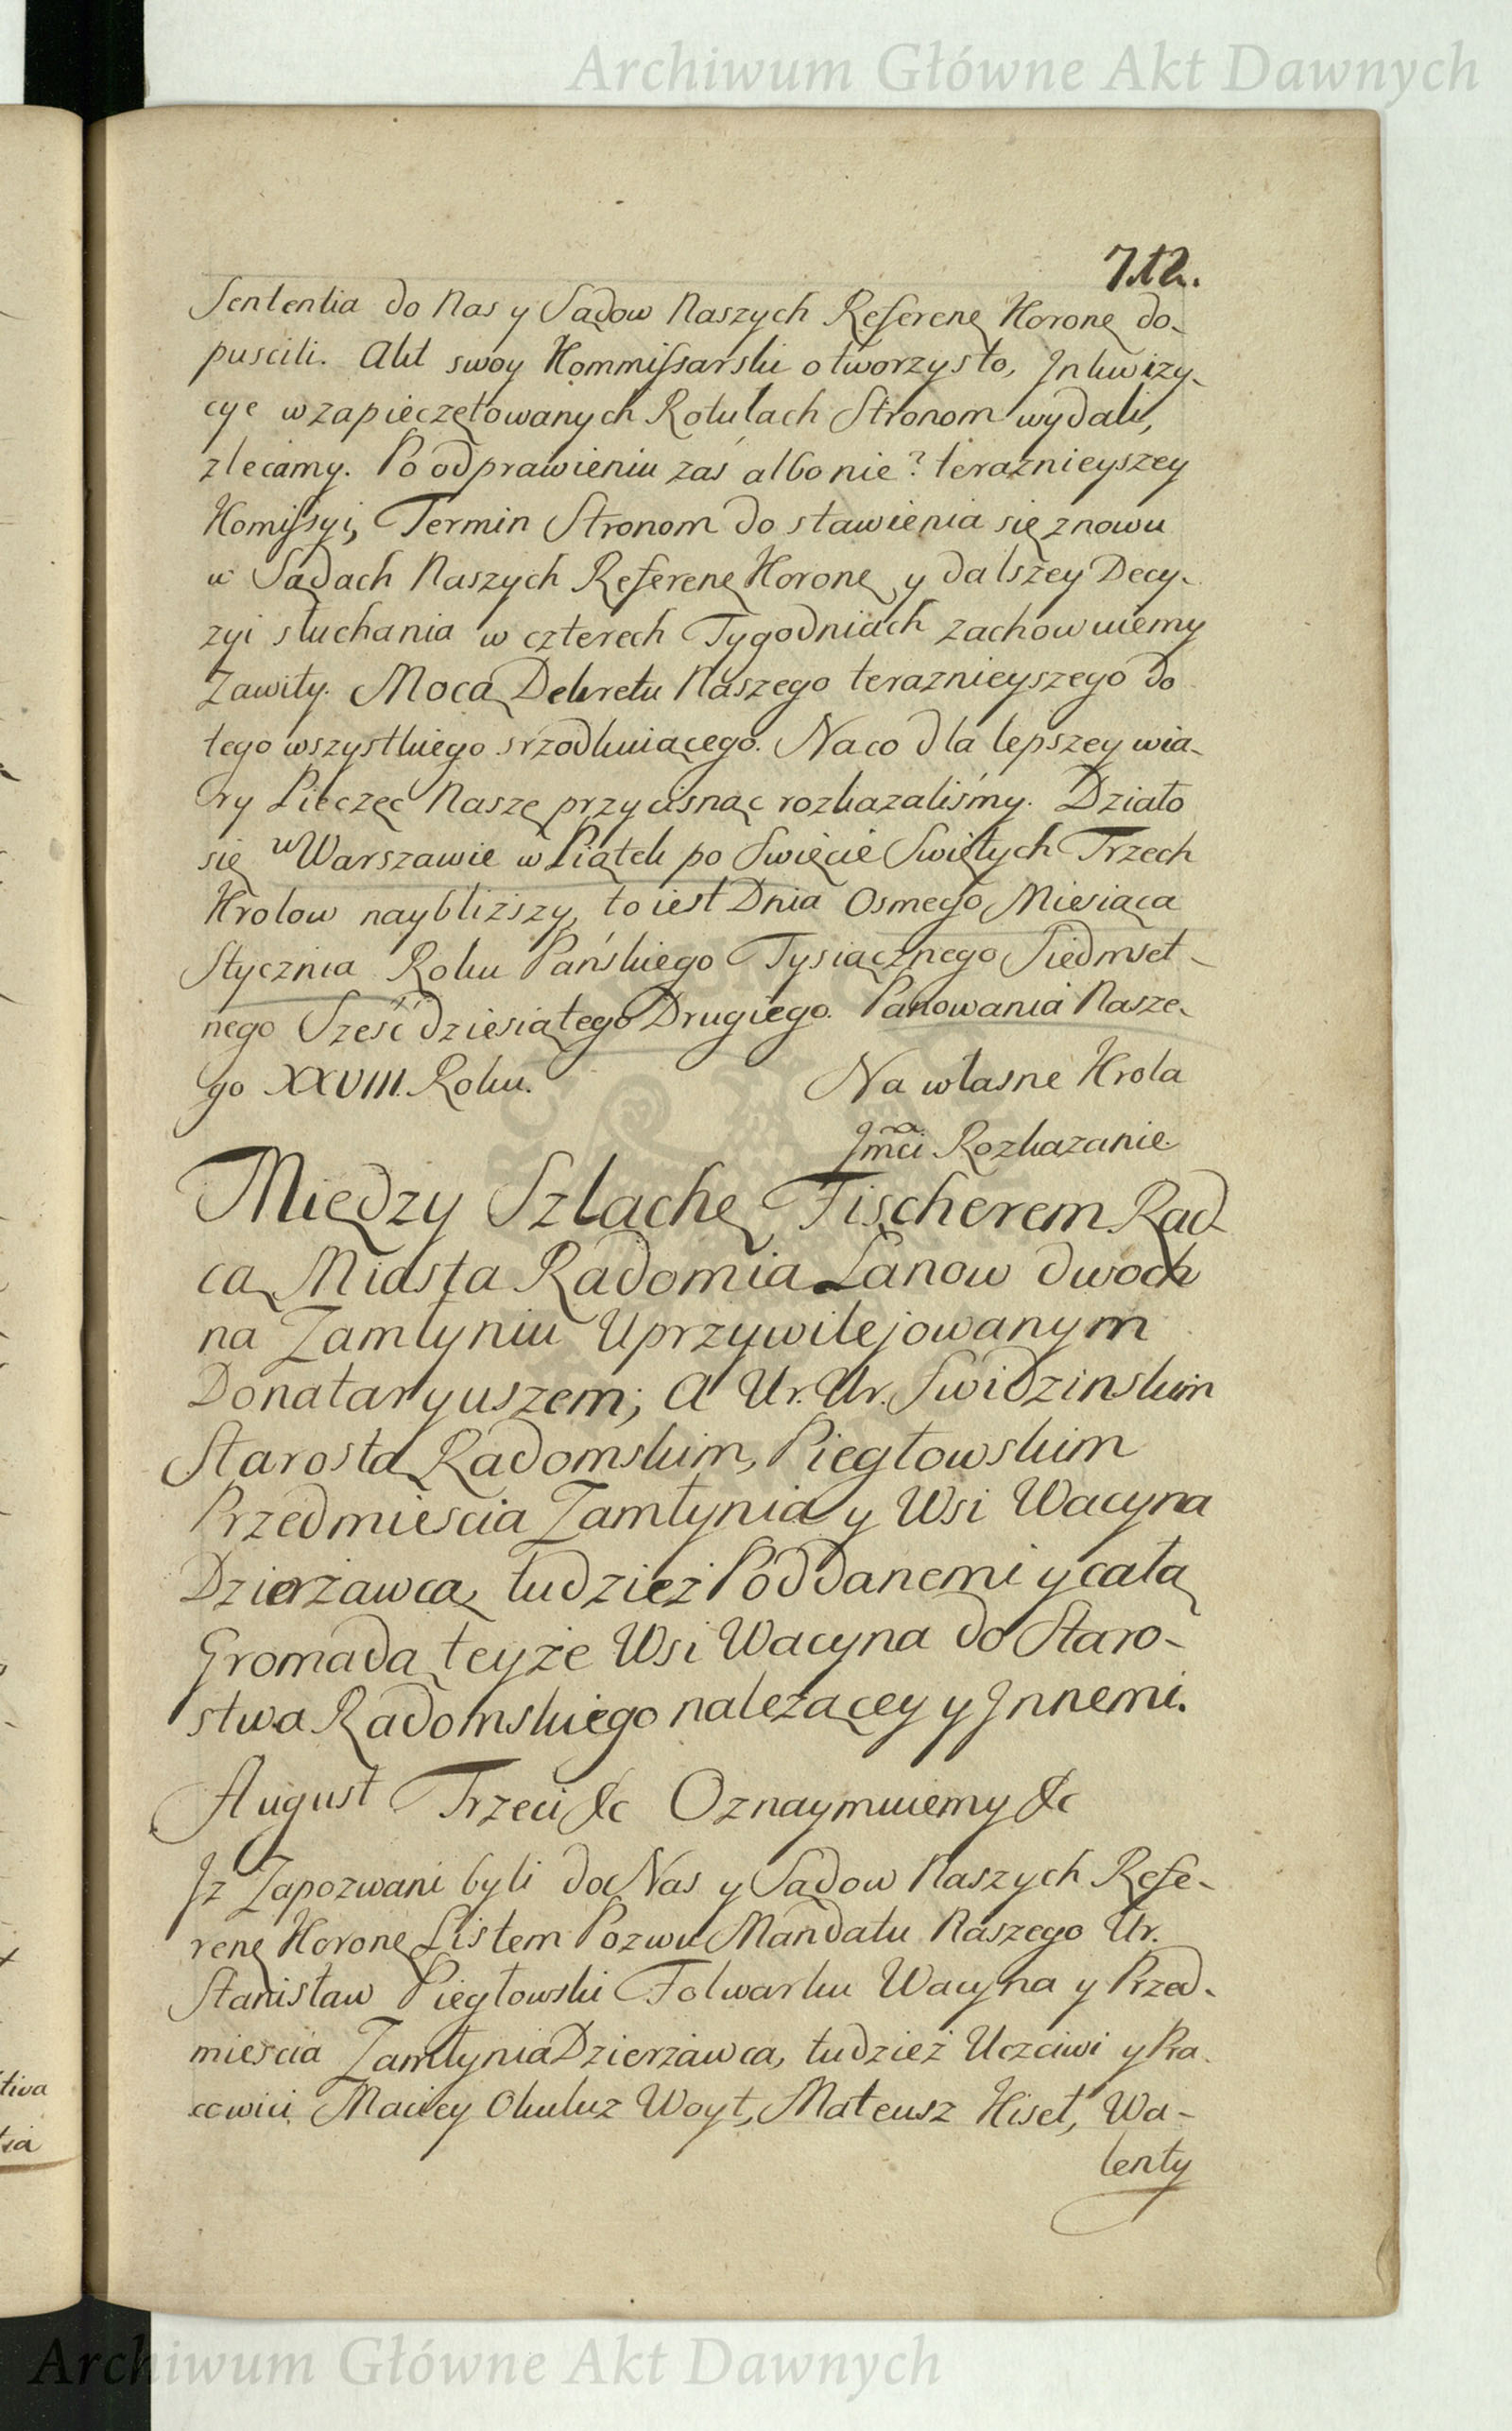 Archiwum Główne Akt Dawnych
712.
Sententia do Nas y Sądow Naszych Referenę Koronę do-
puscili. Akt swoy Kommissarski otworzysto, Inkwizy-
cye w zapieczętowanych Rotułach Stronom wydali,
zlecamy. Po odprawieniu zaś albo nie? teraznieyszey
Komissyi, Termin Stronom do stawienia się znowu
w Sądach Naszych Referenę Koronę y dalszey Decy-
zyi słuchania w czterech Tygodniach zachowuiemy
Zawity. Mocą Dekretu Naszego teraznieyszego do
tego wszystkiego srzodkuiącego. Na co dla lepszey wia-
ry Pieczęć Naszę przycisnąc rozkazaliśmy. Działo
się w Warszawie w Piątek po Swięcie Swiętych Trzech
Krolow naybliższy, to iest Dnia Osmego Miesiąca
Stycznia Roku Pańskiego Tysiącznego Siedmset-
nego Sześćdziesiątego Drugiego. Panowania Nasze-
go XXVIII. Roku.
Na własne Krola
Jmci Rozkazanie.
Między Szlachę Fischerem Rad-
cą Miasta Radomia Łanow dwoch
na Zamłyniu Uprzywilejowanym
Donataryuszem; a Ur. Ur. Swidzinskim
Starostą Radomskim, Piegłowskim
Przedmieścia Zamłynia y Wsi Wacyna
Dzierżawcą, tudzież Poddanemi y całą
Gromadą teyże Wsi Wacyna do Staro-
stwa Radomskiego należącey y Innemi.
August Trzeci &c Oznaymuiemy &c
Iz Zapozwani byli do Nas y Sądow Naszych Refe-
renę Koronę Listem Pozwu Mandatu Naszego Ur.
Stanisław Piegłowski Folwarku Wacyna y Przed-
mieścia Zamłynia Dzierżawca, tudzież Uczciwi y Pra-
cowici Maciey Okulus Woyt, Mateusz Kiseł, Wa-
lenty
Archiwum Główne Akt Dawnych